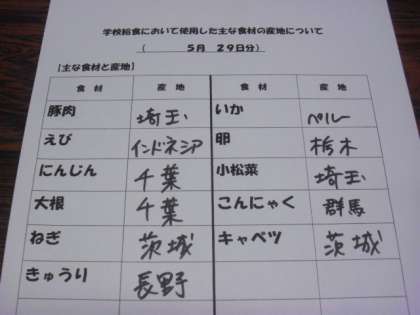 学校給食において使用した主な食材の産地について
( 5月 29日分)
【主な食材と産地】
食材 産地 食材 産地
豚肉 埼玉 いか ペルー
えび インドネシア 卵 栃木
にんじん 千葉 小松菜 埼玉
大根 千葉 こんにゃく 群馬
ねぎ 茨城 キャベツ 茨城
きゅうり 長野